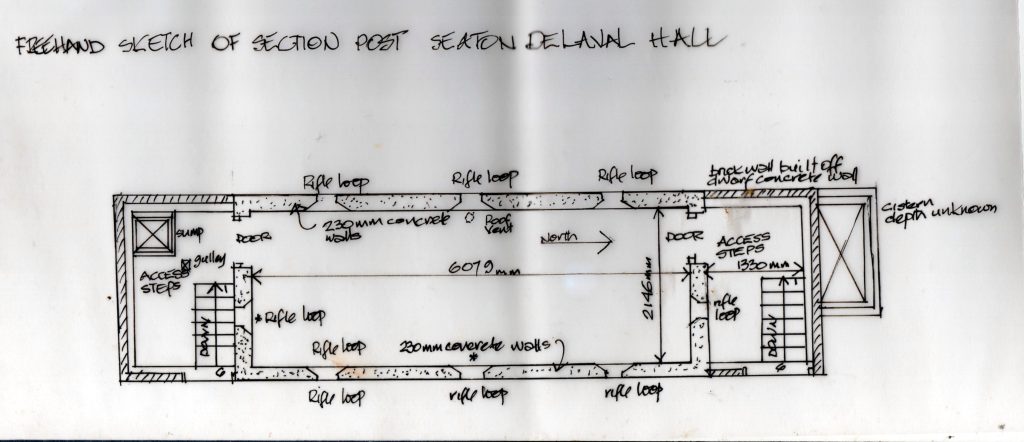 FREEHAND SKETCH OF SECTION POST SEATON DELAVAL HALL
Rifle loop
Rifle loop
Rifle loop
brick wall built off
dwarf concrete wall
cistern
depth unknown
sump
DOOR
230mm concrete
walls
Roof
vent
North
DOOR
ACCESS
STEPS
gulley
ACCESS
STEPS
6079mm
1330mm
2146mm
1
DOWN
6
* Rifle loop
rifle
loop
1
DOWN
6
Rifle loop
230mm concrete walls
*
Rifle loop
rifle loop
rifle loop